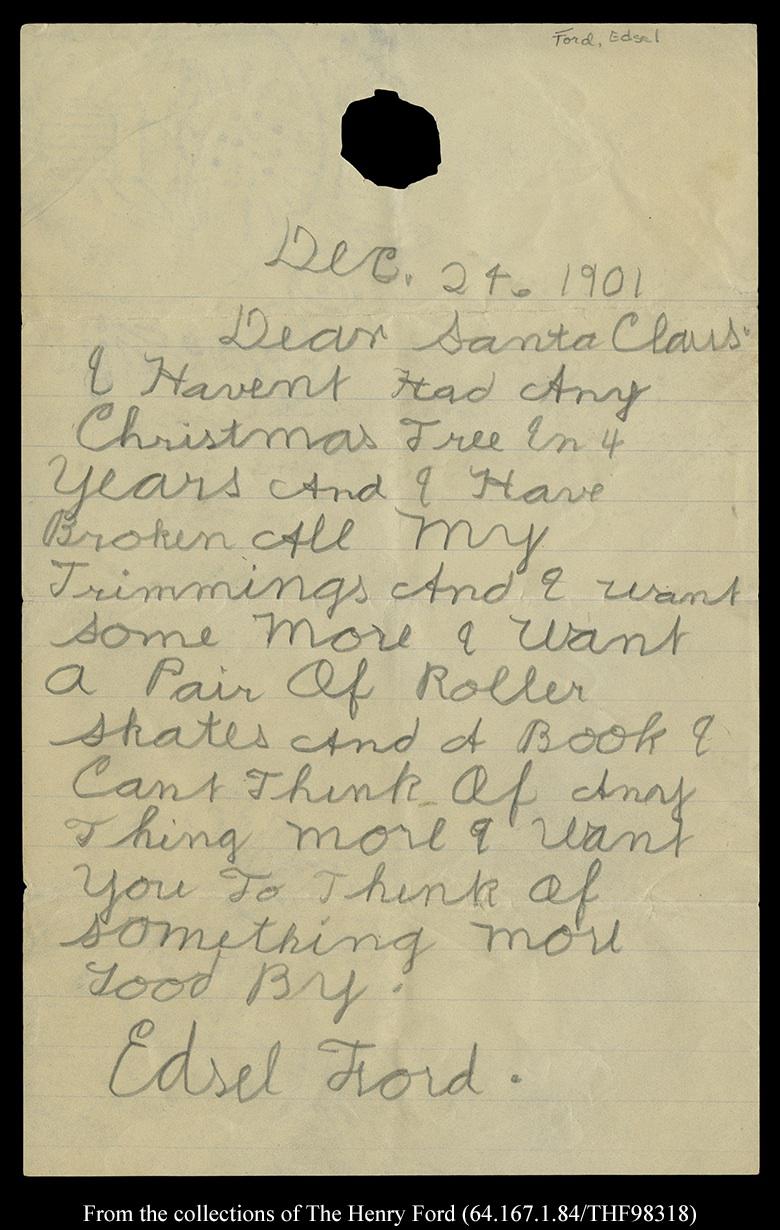 Ford, Edsel
Dec. 24. 1901
Dear Santa Claus
I Havent Had Any
Christmas Tree In 4
Years And I Have
Broken All My
Trimmings And I want
Some More I Want
A Pair Of Roller
Skates And A Book I
Cant Think Of Any
Thing more I Want
You To Think Of
Something more
Good By.
Edsel Ford.
From the collections of The Henry Ford (64.167.1.84/THF98318)